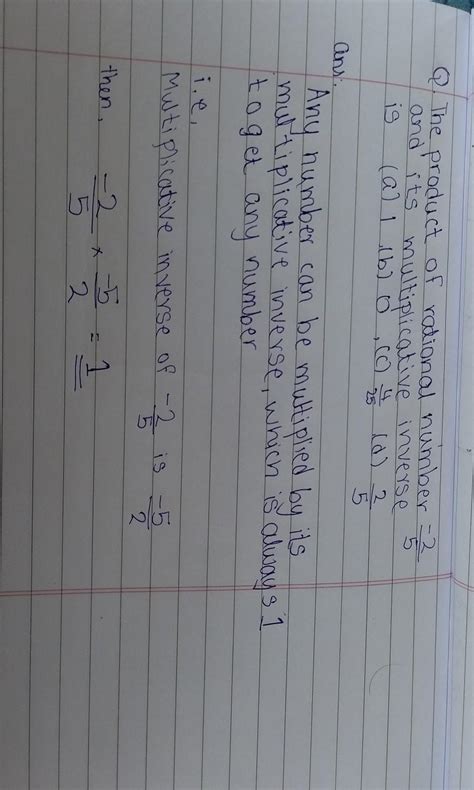 Q. The product of rational number -2/5
and its multiplicative inverse
is (a) 1 (b) 0, (c) 4/25 (d) 2/5
ans.
Any number can be multiplied by its
multiplicative inverse, which is always 1
to get any number
i.e,
Multiplicative inverse of -2/5 is -5/2
then, -2/5 × -5/2 = 1